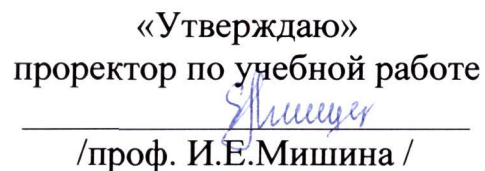 «Утверждаю»
проректор по учебной работе
/проф. И.Е.Мишина /